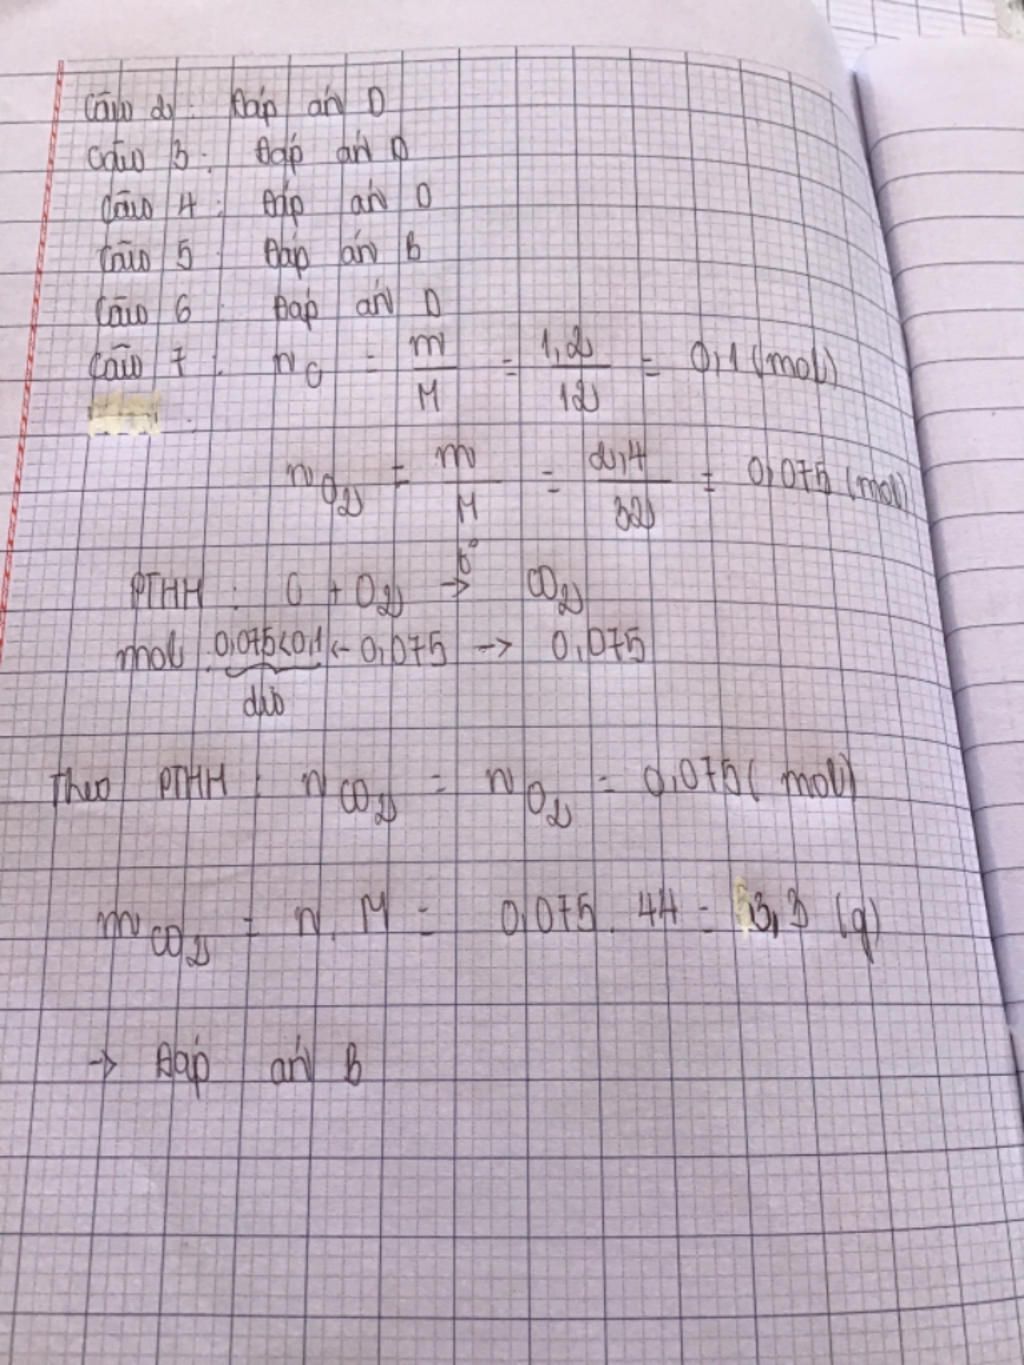 Câu 2: Đáp án D
Câu 3: Đáp án D
Câu 4: Đáp án D
Câu 5: Đáp án B
Câu 6: Đáp án D
Câu 7: n_C = m/M = 1,2/12 = 0,1 (mol)
n_O₂ = m/M = 2,4/32 = 0,075 (mol)
PTHH: C + O₂ →t° CO₂
mol 0,075<0,1 ← 0,075 → 0,075
dư
Theo PTHH: n_CO₂ = n_O₂ = 0,075 (mol)
m_CO₂ = n. M = 0,075. 44 = 3,3 (g)
→ Đáp án B